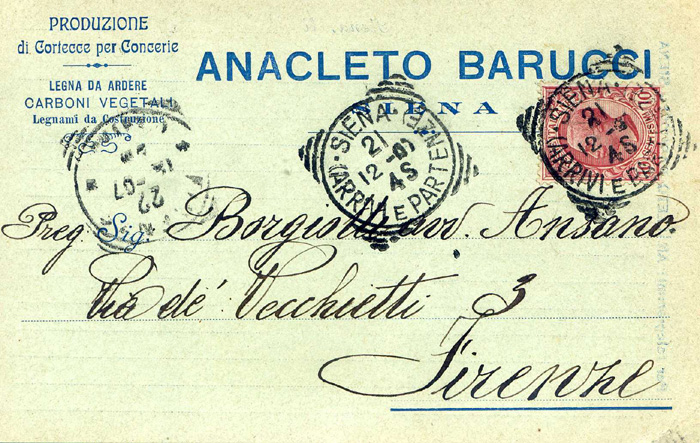 PRODUZIONE
di Cortecce per Concerie
LEGNA DA ARDERE
CARBONI VEGETALI
Legnami da Costruzione
ANACLETO BARUCCI
SIENA
SIENA
21
12
AS
(ARRIVI E PARTENZE)
SIENA
21
12
AS
(ARRIVI E PARTENZE)
Preg. Sig. Borgiotti avv. Ansano.
Via de' Vecchietti 3
Firenze